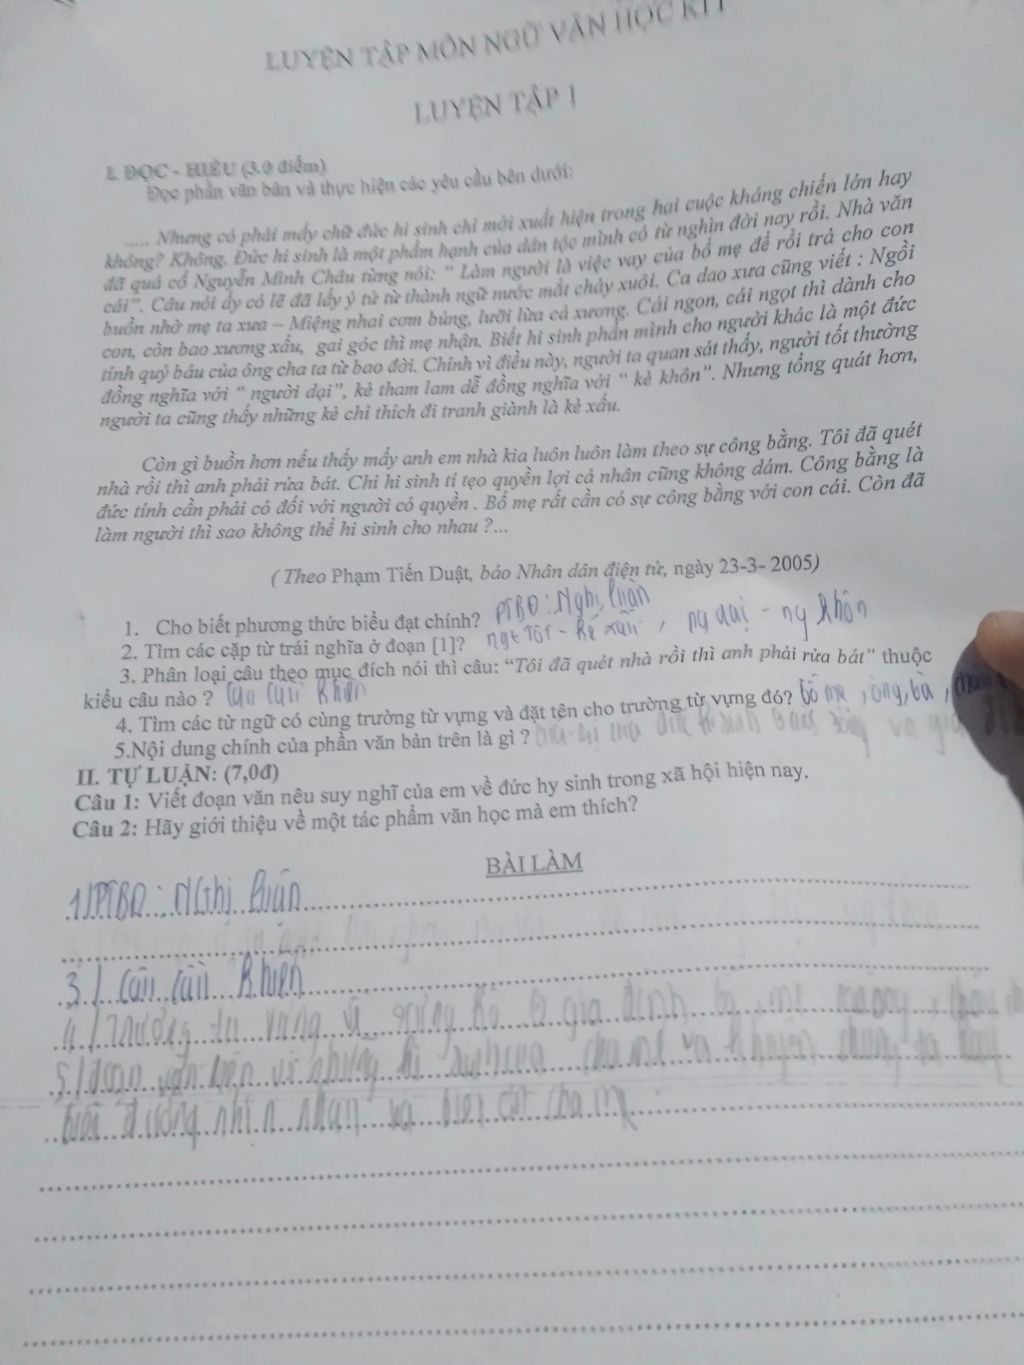 LUYỆN TẬP MÔN NGỮ VĂN HỌC KÌ I
LUYỆN TẬP 1
I. ĐỌC - HIỂU (3.0 điểm)
Đọc phần văn bản và thực hiện các yêu cầu bên dưới:
..... Nhưng có phải mấy chữ đức hi sinh chỉ mới xuất hiện trong hai cuộc kháng chiến lớn hay
không? Không. Đức hi sinh là một phẩm hạnh của dân tộc mình có từ nghìn đời nay rồi. Nhà văn
đã quá cố Nguyễn Minh Châu từng nói: " Làm người là việc vay của bố mẹ để rồi trả cho con
cái". Câu nói ấy có lẽ đã lấy ý từ từ thành ngữ nước mắt chảy xuôi. Ca dao xưa cũng viết : Ngồi
buồn nhớ mẹ ta xưa – Miệng nhai cơm búng, lưỡi lừa cá xương. Cái ngon, cái ngọt thì dành cho
con, còn bao xương xẩu, gai góc thì mẹ nhận. Biết hi sinh phần mình cho người khác là một đức
tính quý báu của ông cha ta từ bao đời. Chính vì điều này, người ta quan sát thấy, người tốt thường
đồng nghĩa với " người dại", kẻ tham lam dễ đồng nghĩa với " kẻ khôn". Nhưng tổng quát hơn,
người ta cũng thấy những kẻ chỉ thích đi tranh giành là kẻ xấu.
Còn gì buồn hơn nếu thấy mấy anh em nhà kia luôn luôn làm theo sự công bằng. Tôi đã quét
nhà rồi thì anh phải rửa bát. Chỉ hi sinh tí tẹo quyền lợi cá nhân cũng không dám. Công bằng là
đức tính cần phải có đối với người có quyền . Bố mẹ rất cần có sự công bằng với con cái. Còn đã
làm người thì sao không thể hi sinh cho nhau ?...
( Theo Phạm Tiến Duật, báo Nhân dân điện tử, ngày 23-3- 2005)
1. Cho biết phương thức biểu đạt chính? PTBĐ: Nghị luận
2. Tìm các cặp từ trái nghĩa ở đoạn [1]? ngt Tốt - kẻ xấu , ng dại - ng khôn
3. Phân loại câu theo mục đích nói thì câu: "Tôi đã quét nhà rồi thì anh phải rửa bát" thuộc
kiểu câu nào ? câu cầu khiến
4. Tìm các từ ngữ có cùng trường từ vựng và đặt tên cho trường từ vựng đó? bố mẹ , ông, bà ,
5.Nội dung chính của phần văn bản trên là gì ?
II. TỰ LUẬN: (7,0đ)
Câu 1: Viết đoạn văn nêu suy nghĩ của em về đức hy sinh trong xã hội hiện nay.
Câu 2: Hãy giới thiệu về một tác phẩm văn học mà em thích?
BÀI LÀM
1/ PTBĐ: Nghị luận
3./ câu cầu khiến
4./ Trường từ vựng gia đình bố mẹ
5./ đoạn văn cha mẹ và khuyên chúng ta hãy
cha mẹ